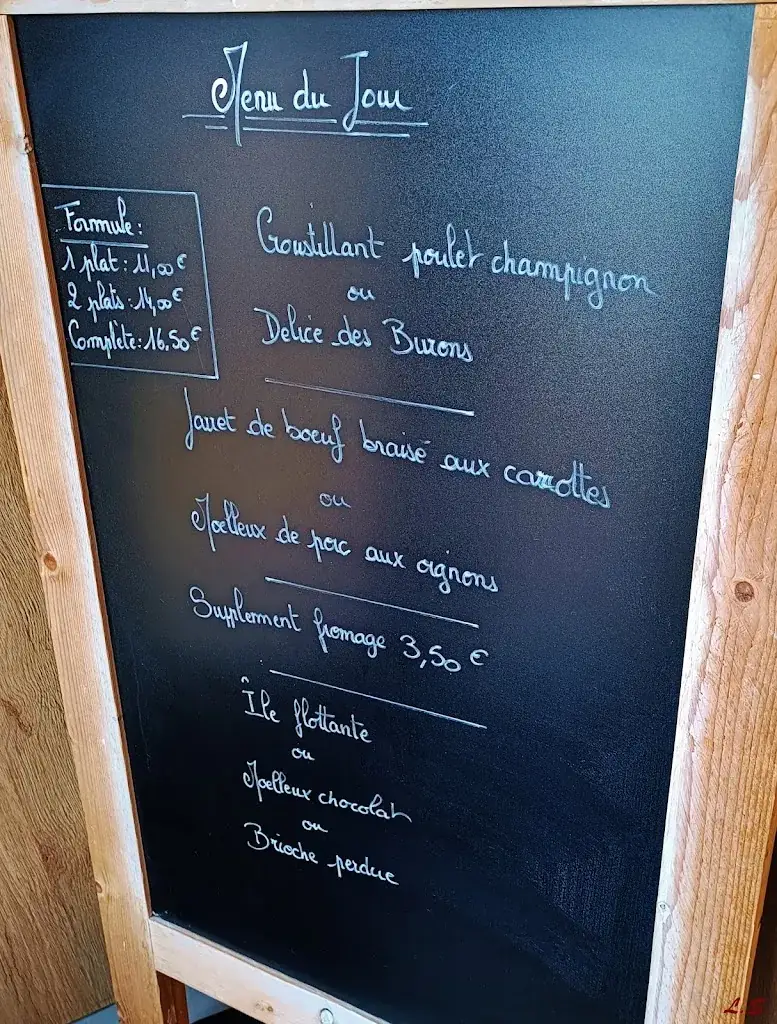 Menu du Jour
Formule:
1 plat: 11,00€
2 plats: 14,00€
Complète: 16.50€
Croustillant poulet champignon
ou
Delice des Burons
Jarret de boeuf braisé aux carottes
ou
Moelleux de porc aux oignons
Supplement fromage 3,50 €
Île flottante
ou
Moelleux chocolat
ou
Brioche perdue